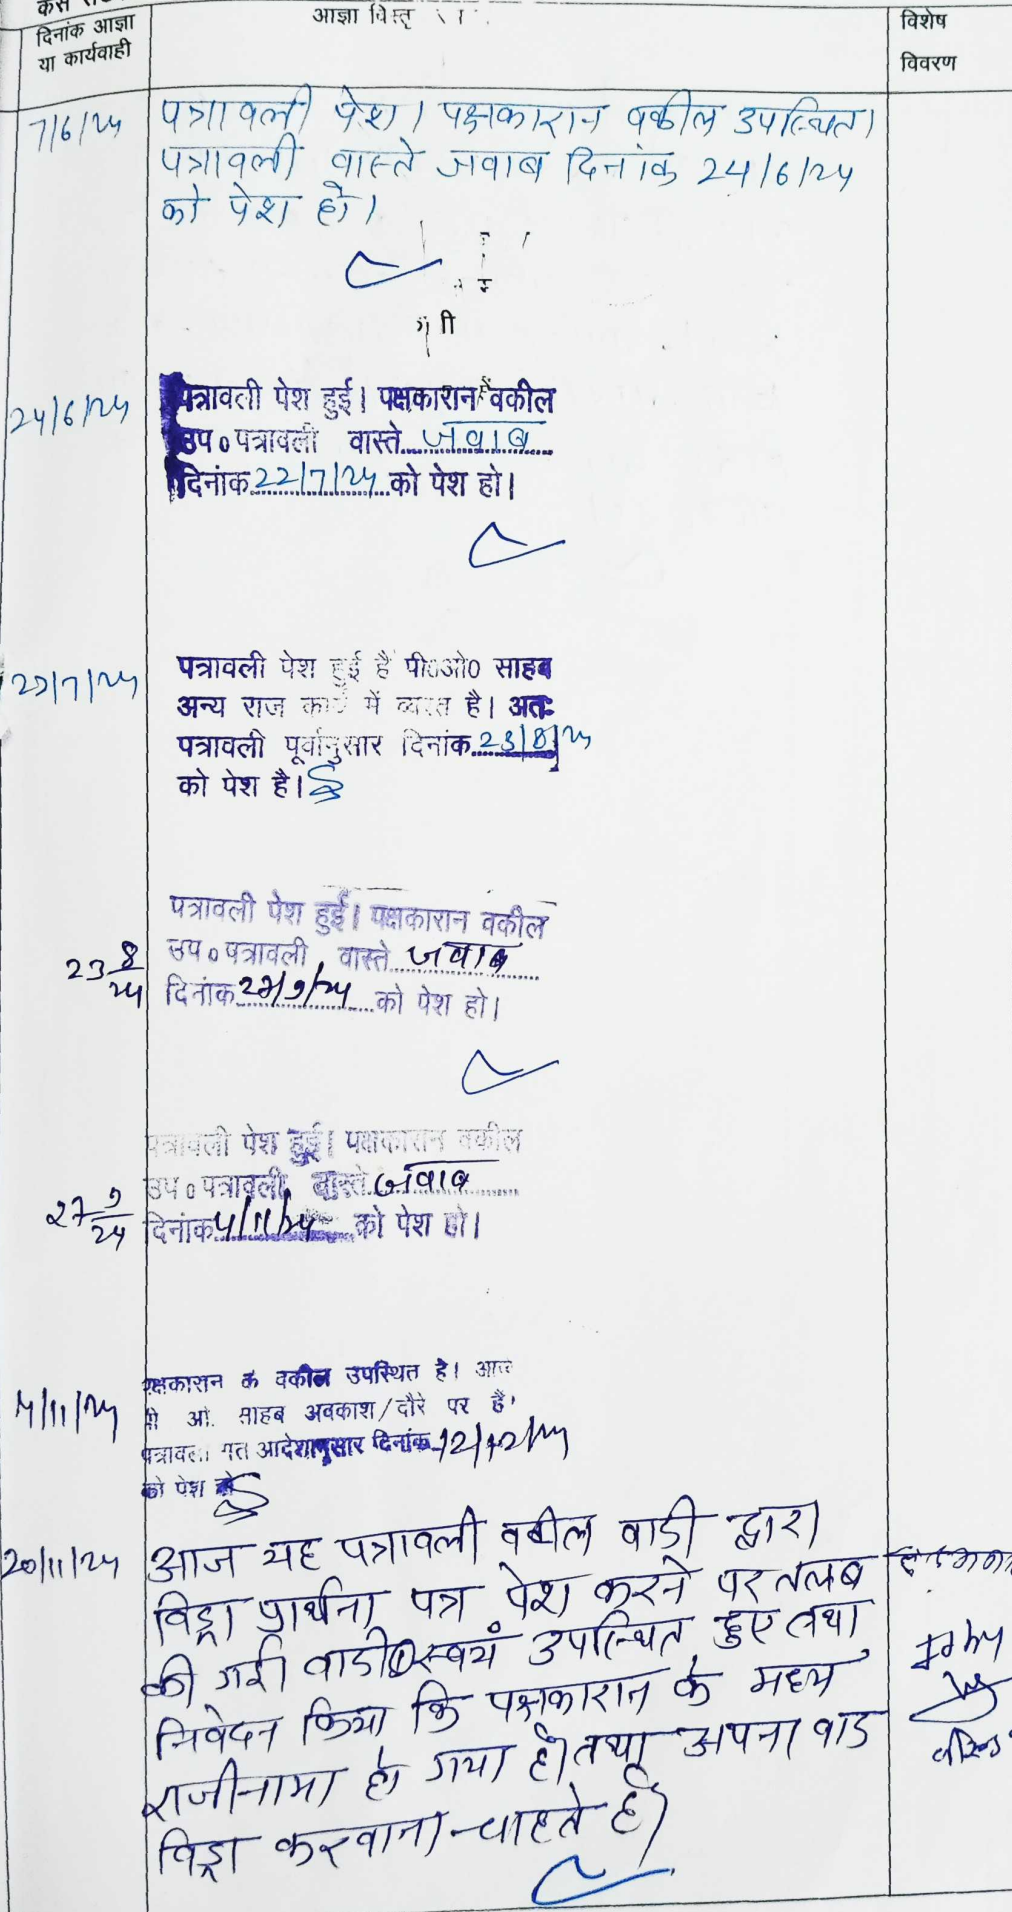 दिनांक आज्ञा
या कार्यवाही
आज्ञा
विशेष
विवरण
7/6/24
पत्रावली पेश। पक्षकारान वकील उपस्थित।
पत्रावली वास्ते जवाब दिनांक 24/6/24
को पेश हो।
24/6/24
पत्रावली पेश हुई। पक्षकारान वकील
उप० पत्रावली वास्ते जवाब
दिनांक 22/7/24 को पेश हो।
22/7/24
पत्रावली पेश हुई है पी०ओ० साहब
अन्य राज कार्य में व्यस्त है। अतः
पत्रावली पूर्वानुसार दिनांक 23/8/24
को पेश है।
23 8/24
पत्रावली पेश हुई। पक्षकारान वकील
उप० पत्रावली वास्ते जवाब
दिनांक 27/9/24 को पेश हो।
27 9/24
पत्रावली पेश हुई। पक्षकारान वकील
उप० पत्रावली वास्ते जवाब
दिनांक 4/11/24 को पेश हो।
4/11/24
पक्षकारान के वकील उपस्थित है। आज
पी ओ. साहब अवकाश/दौरे पर हैं
पत्रावली गत आदेशानुसार दिनांक 12/12/24
को पेश हो
20/11/24
आज यह पत्रावली वकील वादी द्वारा
विड्रा प्रार्थना पत्र पेश करने पर तलब
की गई। वादी स्वयं उपस्थित हुए तथा
निवेदन किया कि पक्षकारान के मध्य
राजीनामा हो गया है। तथा अपना वाद
विड्रा करवाना चाहते है।